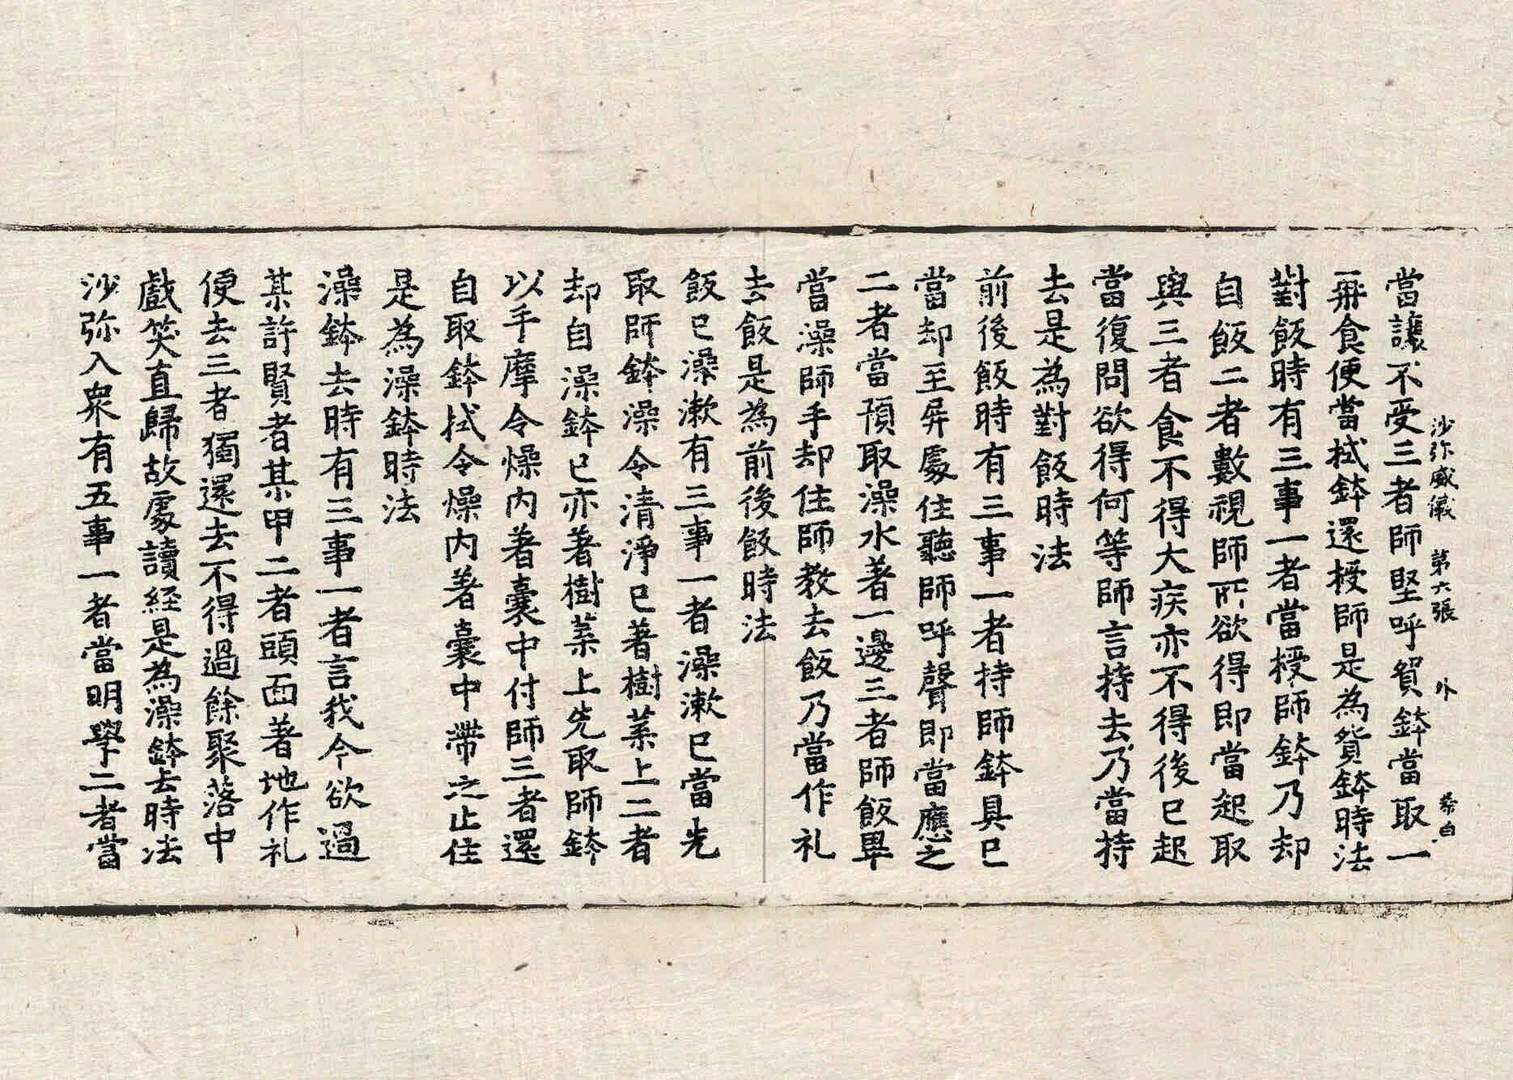 沙弥威儀　第六張　外　恭白
當讓不受三者師堅呼貿鉢當取一
飛食便當拭鉢還授師是為貿鉢時法
對飯時有三事一者當授師鉢乃却
自飯二者數視師所欲得即當起取
與三者食不得大疾亦不得後已起
當復問欲得何等師言持去乃當持
去是為對飯時法
前後飯時有三事一者持師鉢具已
當却至屏處住聽師呼聲即當應之
二者當預取澡水著一邊三者師飯畢
當澡師手却住師教去飯乃當作礼
去飯是為前後飯時法
飯已澡漱有三事一者澡漱已當先
取師鉢澡令清淨已著樹葉上二者
却自澡鉢已亦著樹葉上先取師鉢
以手摩令燥内著囊中付師三者還
自取鉢拭令燥内著囊中帶之止住
是為澡鉢時法
澡鉢去時有三事一者言我今欲過
某許賢者某甲二者頭面著地作礼
便去三者獨還去不得過餘聚落中
戲笑直歸故處讀経是為澡鉢去時法
沙弥入衆有五事一者當明學二者當